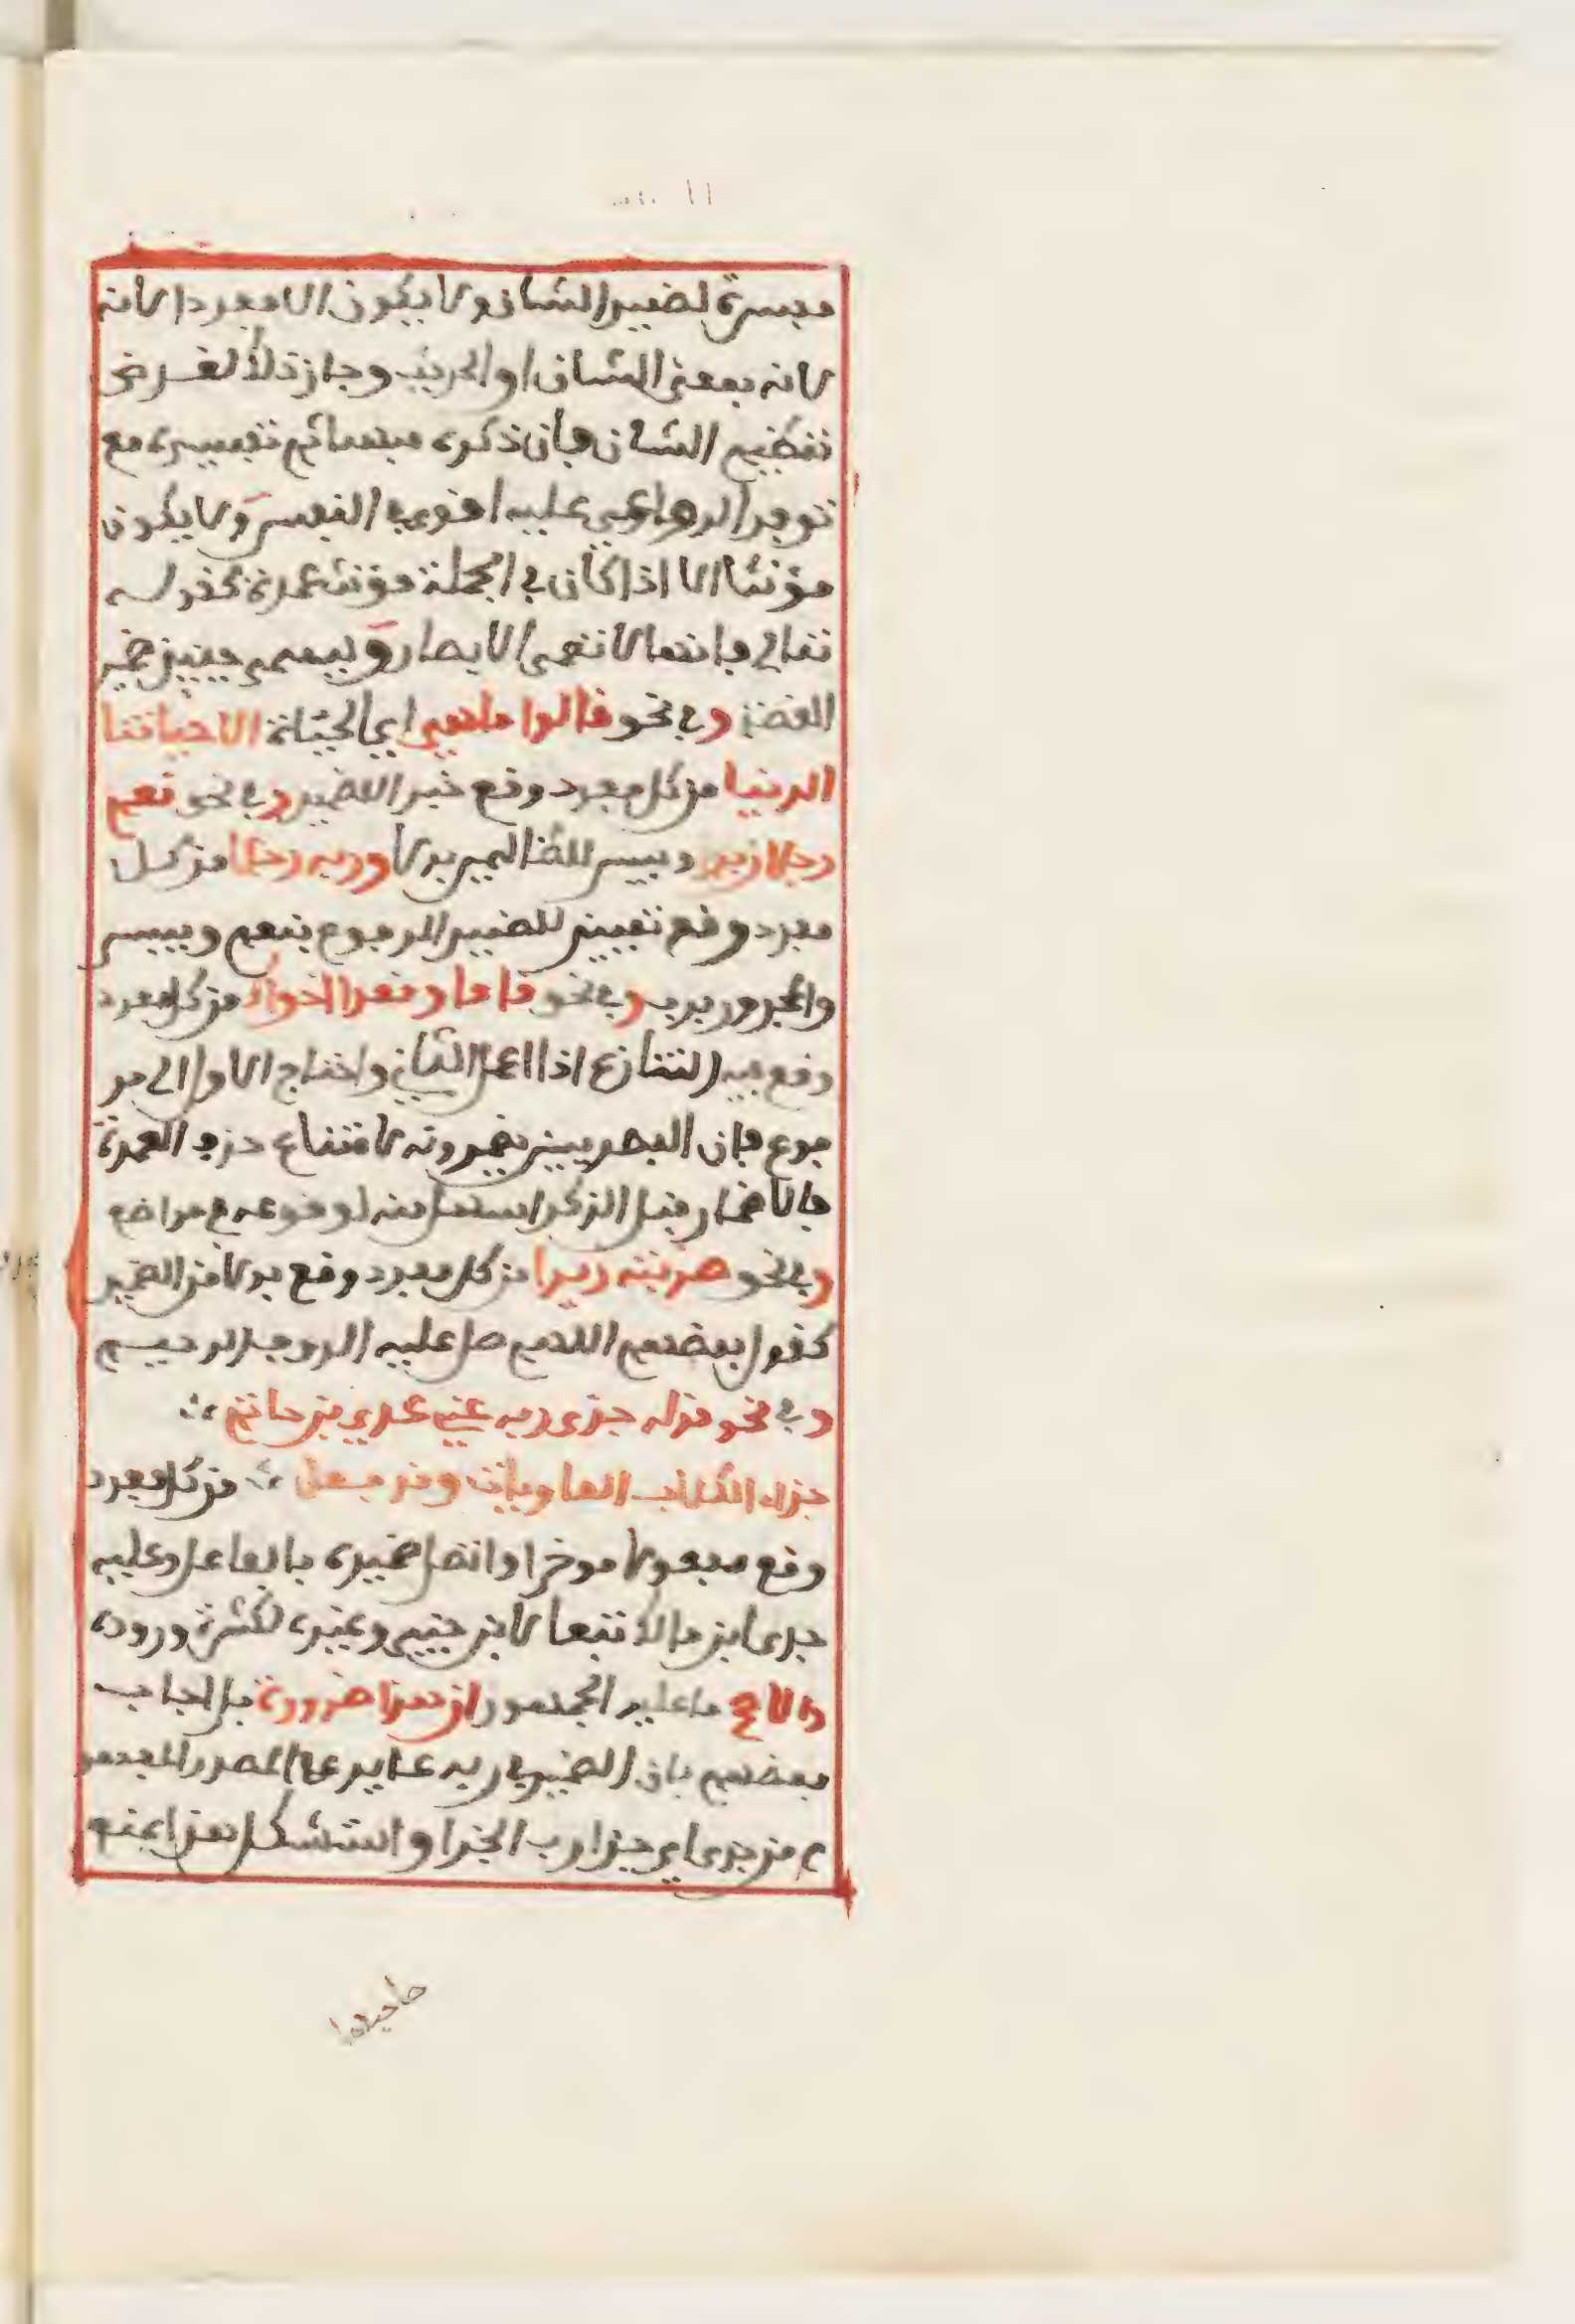 مفسرة لضمير الشان ولا يكون الا مفردا لانه
لانه بمعنى الشان او الحديث وجاز ذلك لغرض
تعظيم الشان فان ذكره مبهما ثم تفسيره مع
توفر الدواعي عليه اقوى في النفس ولا يكون
مؤنثا الا اذا كان في الجملة مؤنث عمدة كقوله
تعالى فانها لا تعمى الابصار ويسمى حينئذ ضمير
القصة وفي نحو قالوا ما هي اي الحياة الا حياتنا
الدنيا من كل مفرد وقع خبر الضمير وفي نحو نعم
رجلا زيد وبيس للظالمين بدلا وربه رجلا من كل
مفرد وقع تمييز للضمير المرفوع بنعم وبيس
والمجرور برب وفي نحو قاما وقعد اخواك من كل مفرد
وقع فيه التنازع اذا اعمل الثاني واحتاج الاول الى مر
فوع فان البصريين يضمرونه لامتناع حذف العمدة
فالاضمار قبل الذكر اسهل منه لوقوعه في مواضع
وفي نحو ضربته زيدا من كل مفرد وقع بدلا من الضمير
كقول بعضهم اللهم صل عليه الروف الرحيم
وفي نحو قوله جزى ربه عني عدي بن حاتم
جزاء الكلاب العاويات وقد فعل من كل مفرد
وقع مفعولا موخرا واتصل ضميره بالفاعل وعليه
جرى ابن مالك تبعا لابن جني وغيره لكثرة وروده
والاصح ما عليه الجمهور ان هذا ضرورة بل اجاب
بعضهم بان الضمير في ربه عايد على المصدر المفهو
م من جزى اي جزا رب الجزا واستشكل هذا بمنع